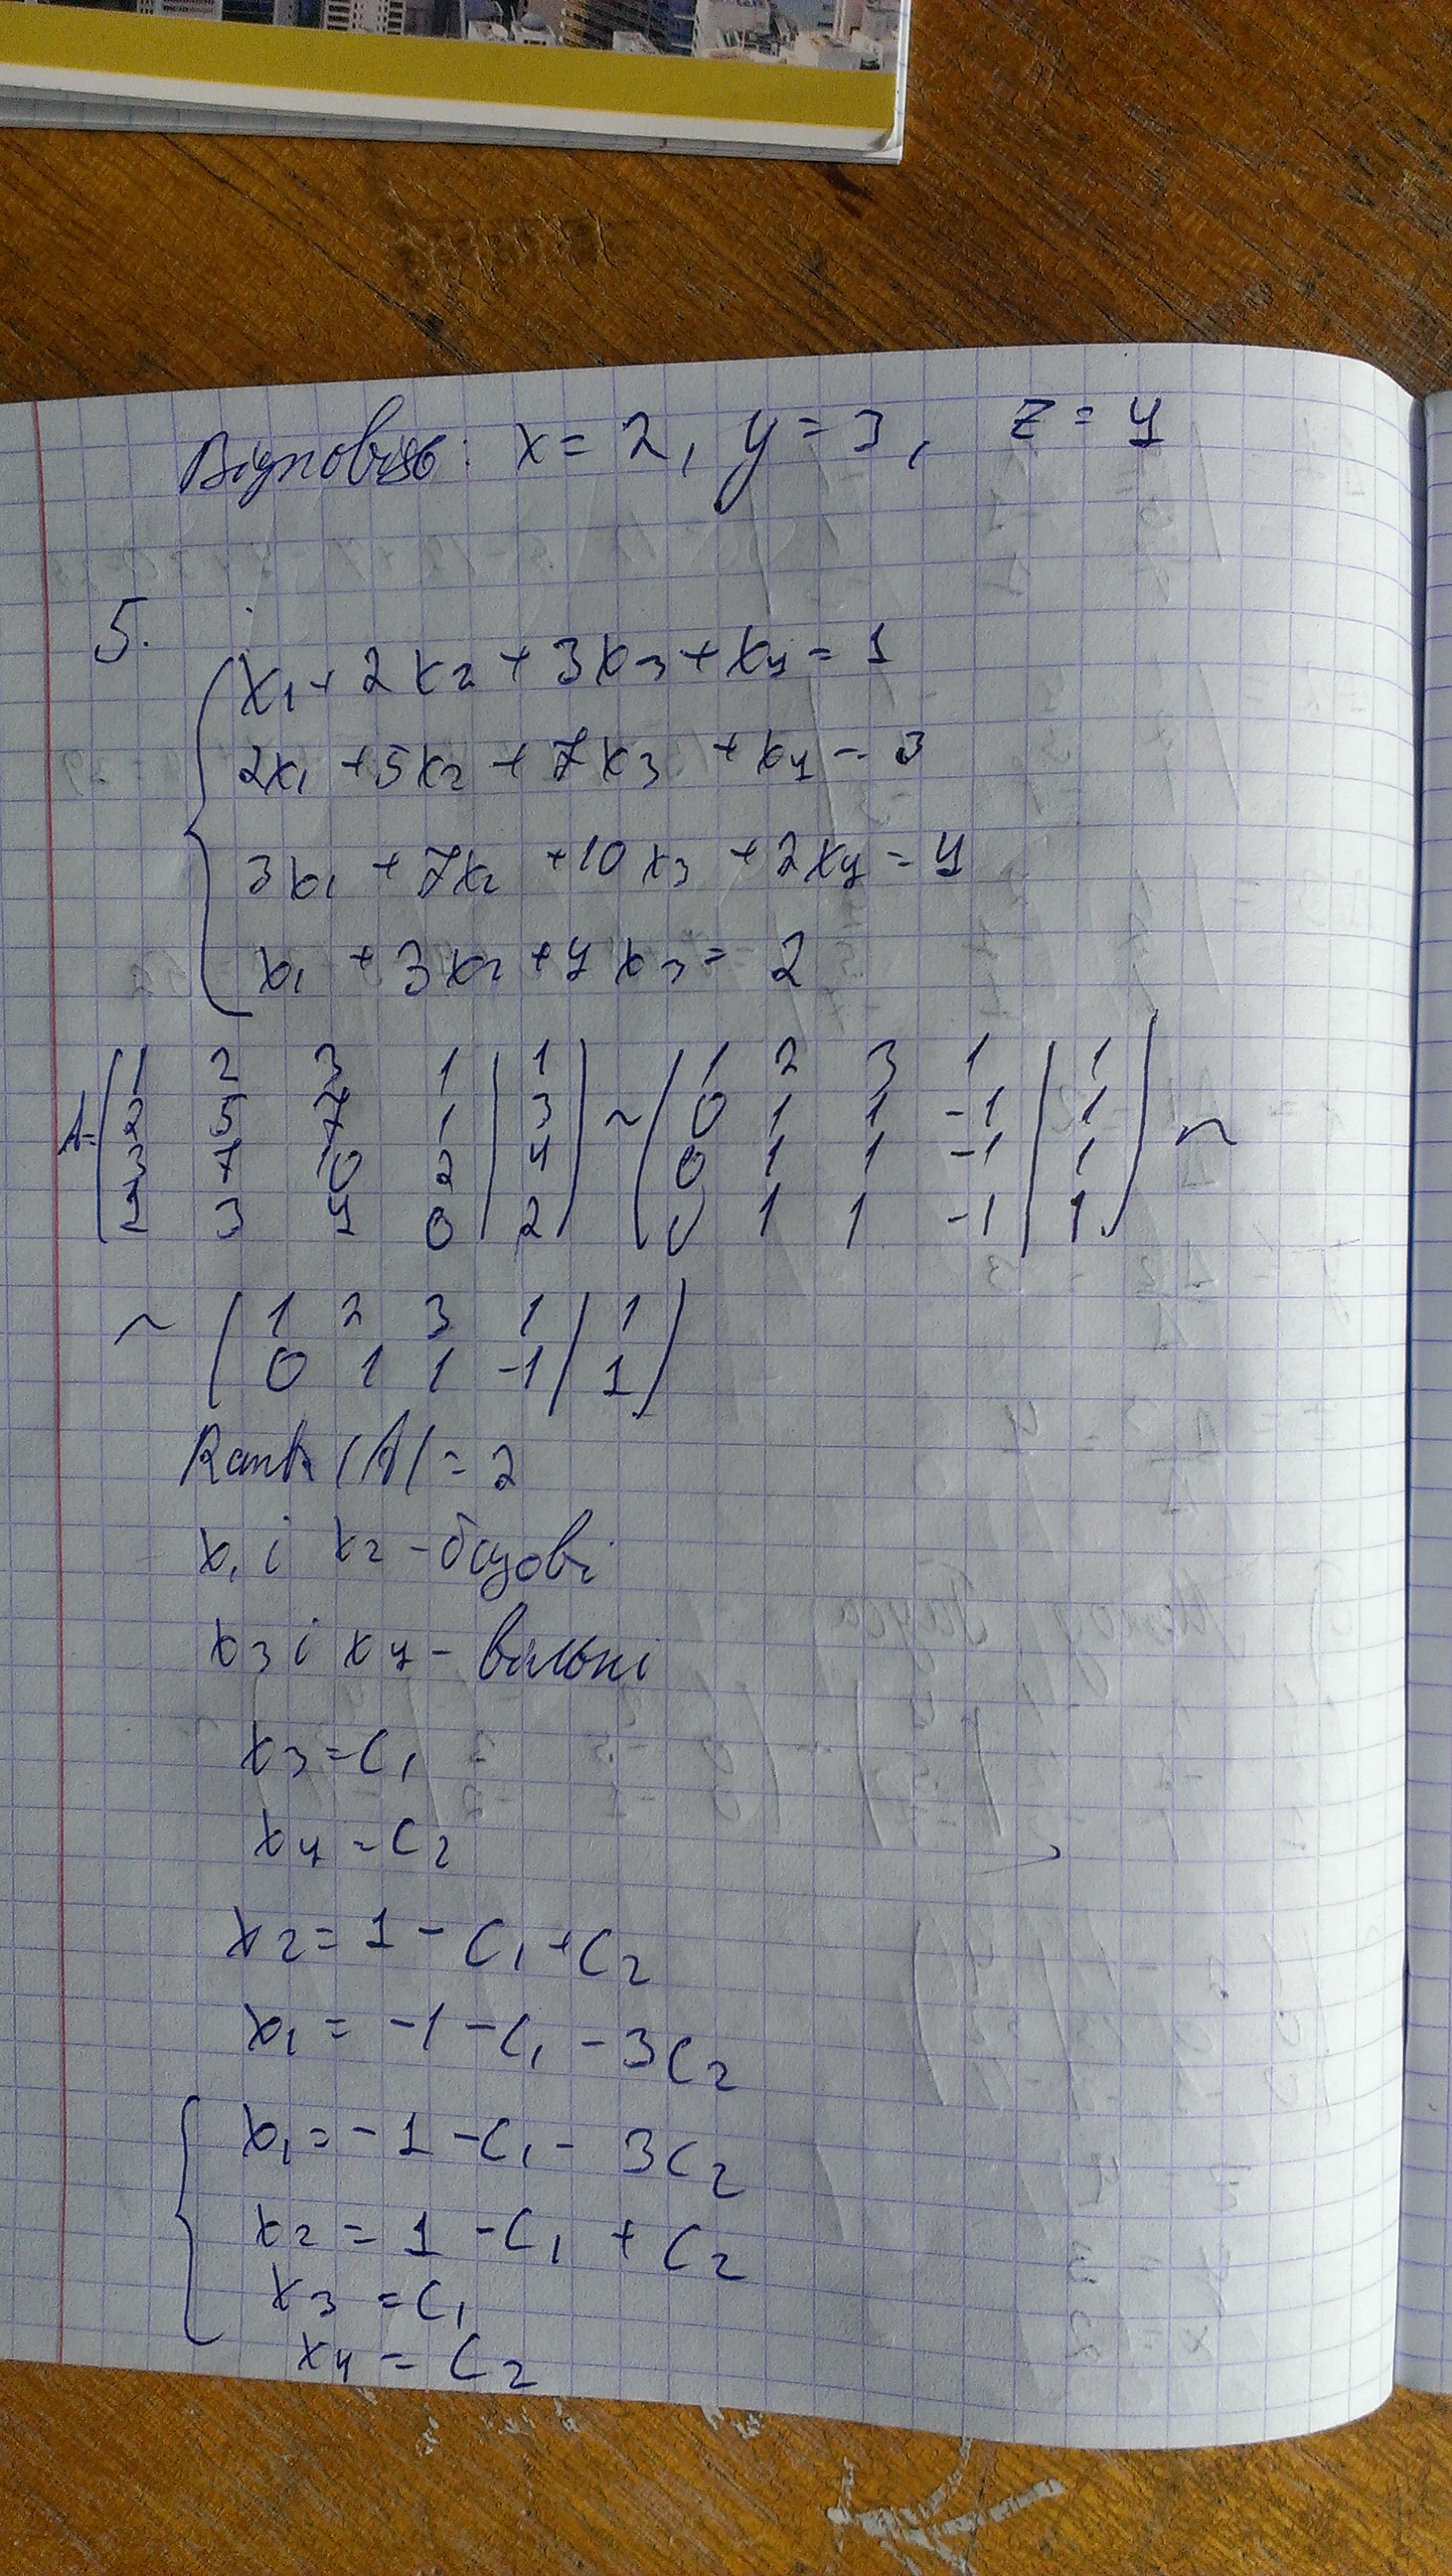 Відповідь: x = 2, y = 3, z = 4
5.
x₁ + 2x₂ + 3x₃ + x₄ = 1
2x₁ + 5x₂ + 7x₃ + x₄ = 3
3x₁ + 7x₂ + 10x₃ + 2x₄ = 4
x₁ + 3x₂ + 4x₃ = 2
A = ( 1 2 3 1 | 1 ) ~ ( 1 2 3 1 | 1 ) ~
2 5 7 1 | 3 0 1 1 -1 | 1
3 7 10 2 | 4 0 1 1 -1 | 1
1 3 4 0 | 2 0 1 1 -1 | 1
~ ( 1 2 3 1 | 1 )
0 1 1 -1 | 1
Rank (A) = 2
x₁ і x₂ - базові
x₃ і x₄ - вільні
x₃ = C₁
x₄ = C₂
x₂ = 1 - C₁ + C₂
x₁ = -1 - C₁ - 3C₂
x₁ = -1 - C₁ - 3C₂
x₂ = 1 - C₁ + C₂
x₃ = C₁
x₄ = C₂